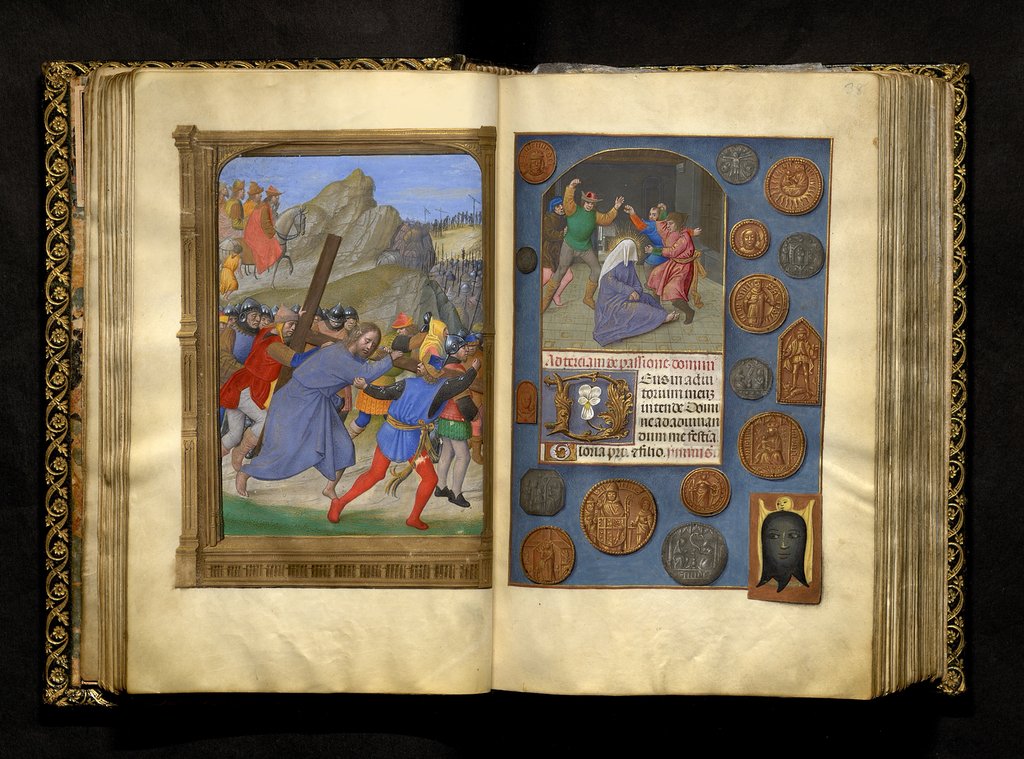 38
Ad terciam de passione domini
Deus in adiu
torium meuz
intende Domi
ne ad adiuuan
dum me festia
Gloria pri. et filio.